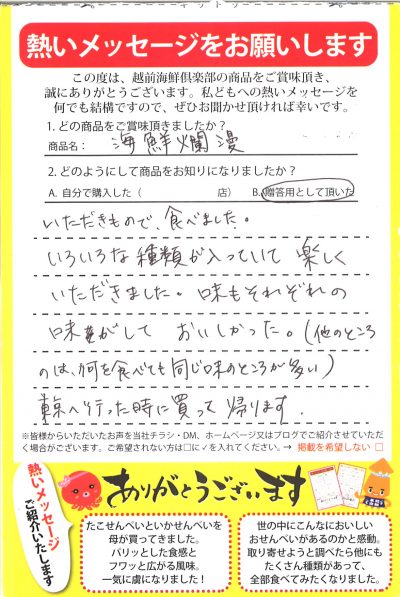 キリトリ
熱いメッセージをお願いします
この度は、越前海鮮倶楽部の商品をご賞味頂き、
誠にありがとうございます。私どもへの熱いメッセージを
何でも結構ですので、ぜひお聞かせ頂ければ幸いです。
1. どの商品をご賞味頂きましたか？
商品名： 海鮮爛漫
2. どのようにして商品をお知りになりましたか？
A. 自分で購入した（ 店） B. 贈答用として頂いた
いただきもので、食べました。
いろいろな種類が入っていて 楽しく
いただきました。味もそれぞれの
味がして おいしかった。(他のところ
のは、何を食べても同じ味のところが多い)
東京へ行った時に買って帰ります.
※皆様からいただいたお声を当社チラシ・DM、ホームページ又はブログでご紹介させていただ
く場合がございます。ご希望されない方は□に✓を入れてください。→ 掲載を希望しない □
熱いメッセージ
ご紹介いたします
ありがとうございます
たこせんべいといかせんべいを
母が買ってきました。
パリッとした食感と
フワッと広がる風味。
一気に虜になりました！
世の中にこんなにおいしい
おせんべいがあるのかと感動。
取り寄せようと調べたら他にも
たくさん種類があって、
全部食べてみたくなりました。